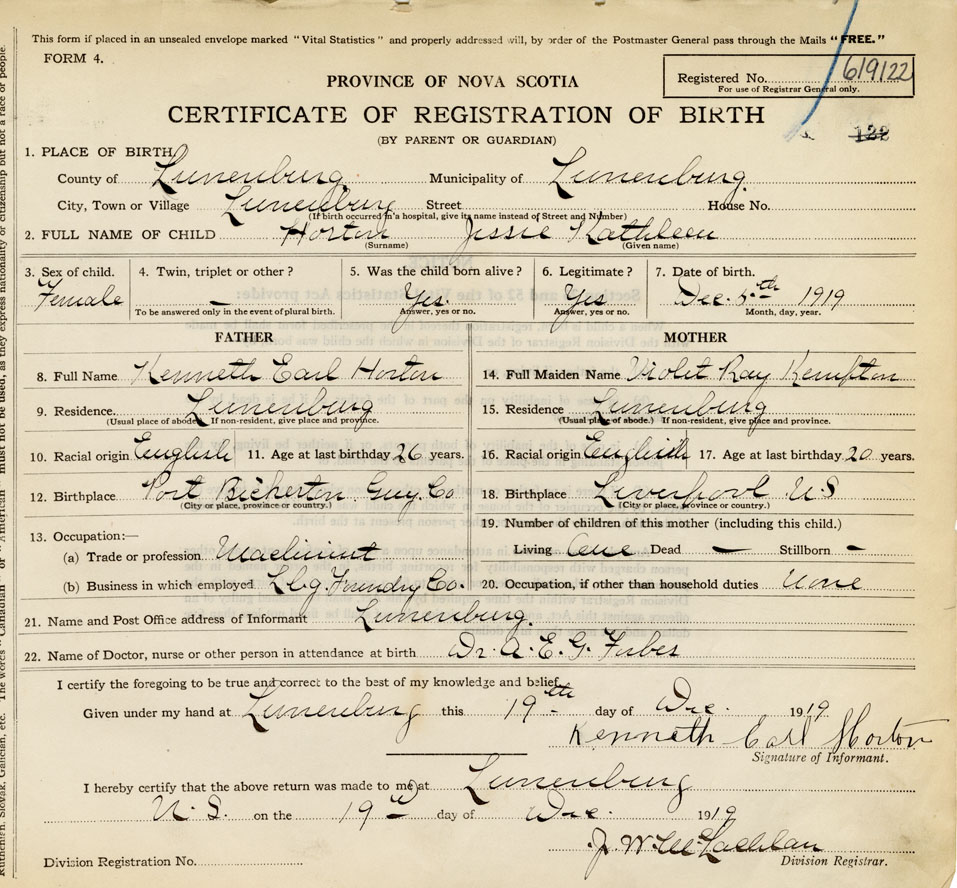 This form if placed in an unsealed envelope marked "Vital Statistics" and properly addressed will, by order of the Postmaster General pass through the Mails "FREE."
FORM 4.
Registered No. 619122
For use of Registrar General only.
PROVINCE OF NOVA SCOTIA
CERTIFICATE OF REGISTRATION OF BIRTH
(BY PARENT OR GUARDIAN)
122
1. PLACE OF BIRTH
County of Lunenburg. Municipality of Lunenburg
City, Town or Village Lunenburg Street House No.
(If birth occurred in a hospital, give its name instead of Street and Number)
2. FULL NAME OF CHILD Horton Jessie Kathleen
(Surname) (Given name)
3. Sex of child. 4. Twin, triplet or other? 5. Was the child born alive? 6. Legitimate? 7. Date of birth.
Female — Yes. Yes Dec. 5th 1919
To be answered only in the event of plural birth. Answer, yes or no. Answer, yes or no. Month, day, year.
FATHER
8. Full Name Kenneth Earl Horton
9. Residence. Lunenburg
(Usual place of abode. If non-resident, give place and province.
10. Racial origin English 11. Age at last birthday 26 years.
12. Birthplace Port Bickerton Guy. Co
(City or place, province or country.)
13. Occupation:—
(a) Trade or profession Machinist
(b) Business in which employed Lbg. Foundry Co.
MOTHER
14. Full Maiden Name Violet Ray Kempton
15. Residence Lunenburg
(Usual place of abode.) If non-resident, give place and province.
16. Racial origin English 17. Age at last birthday 20 years.
18. Birthplace Liverpool N.S
(City or place, province or country.)
19. Number of children of this mother (including this child.)
Living One Dead — Stillborn -
20. Occupation, if other than household duties None
21. Name and Post Office address of Informant Lunenburg.
22. Name of Doctor, nurse or other person in attendance at birth Dr. A. E. G. Forbes
I certify the foregoing to be true and correct to the best of my knowledge and belief.
Given under my hand at Lunenburg this 19th day of Dec. 1919
Kenneth Earl Horton
Signature of Informant.
I hereby certify that the above return was made to me at Lunenburg
N. S. on the 19th day of Dec. 1919
J. W. McLachlan
Division Registrar.
Division Registration No.